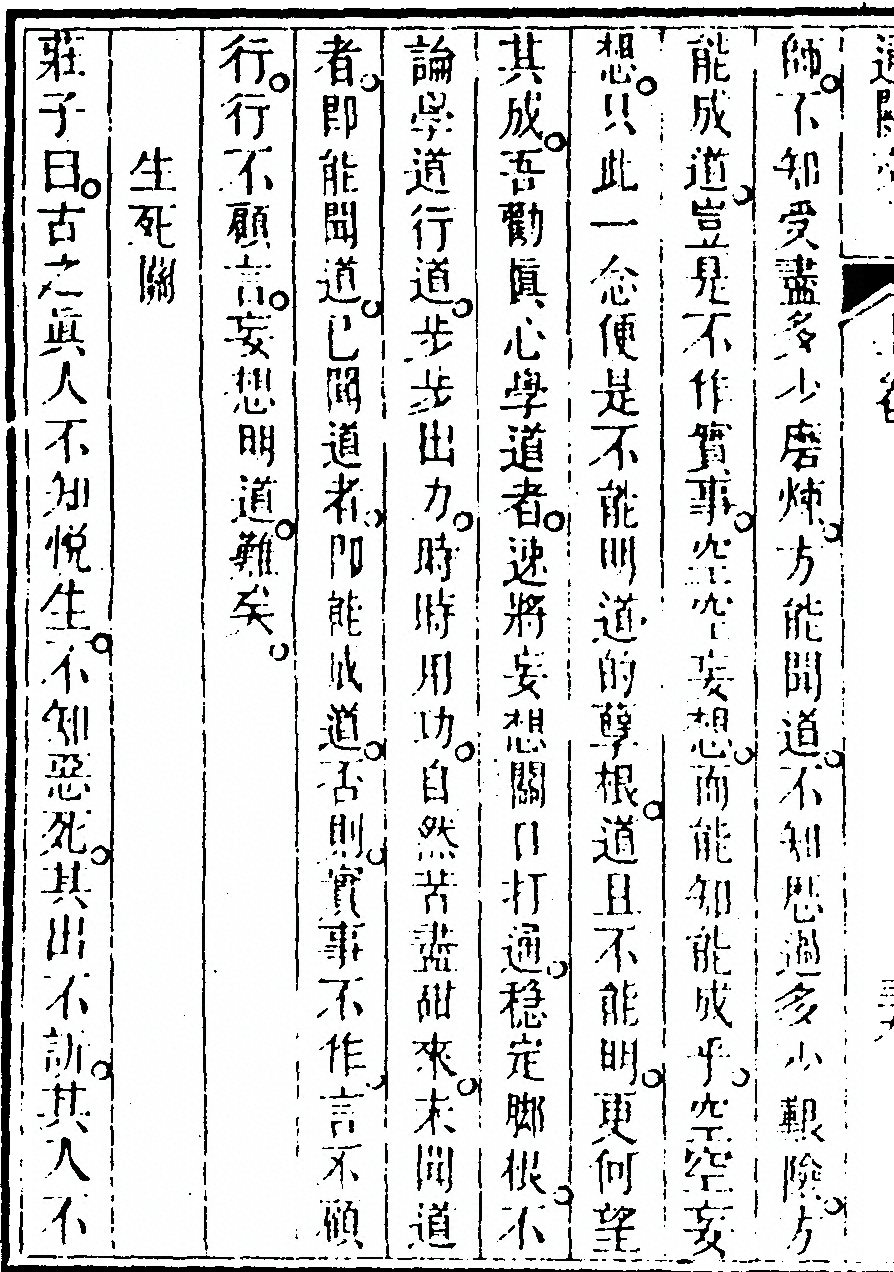 通關文
上卷
師。不知受盡多少磨煉。方能聞道。不知歷過多少艱險。方
能成道。豈是不作實事。空空妄想。而能知能成乎。空空妄
想。只此一念便是不能明道的孽根。道且不能明。更何望
其成。吾勸眞心學道者。速將妄想關口打通。穩定腳根。不
論學道行道。步步出力。時時用功。自然苦盡甜來。未聞道
者。卽能聞道。已聞道者。卽能成道。否則。實事不作。言不顧
行。行不顧言。妄想明道。難矣。
生死關
莊子曰。古之眞人不知悅生。不知惡死。其出不訢。其入不